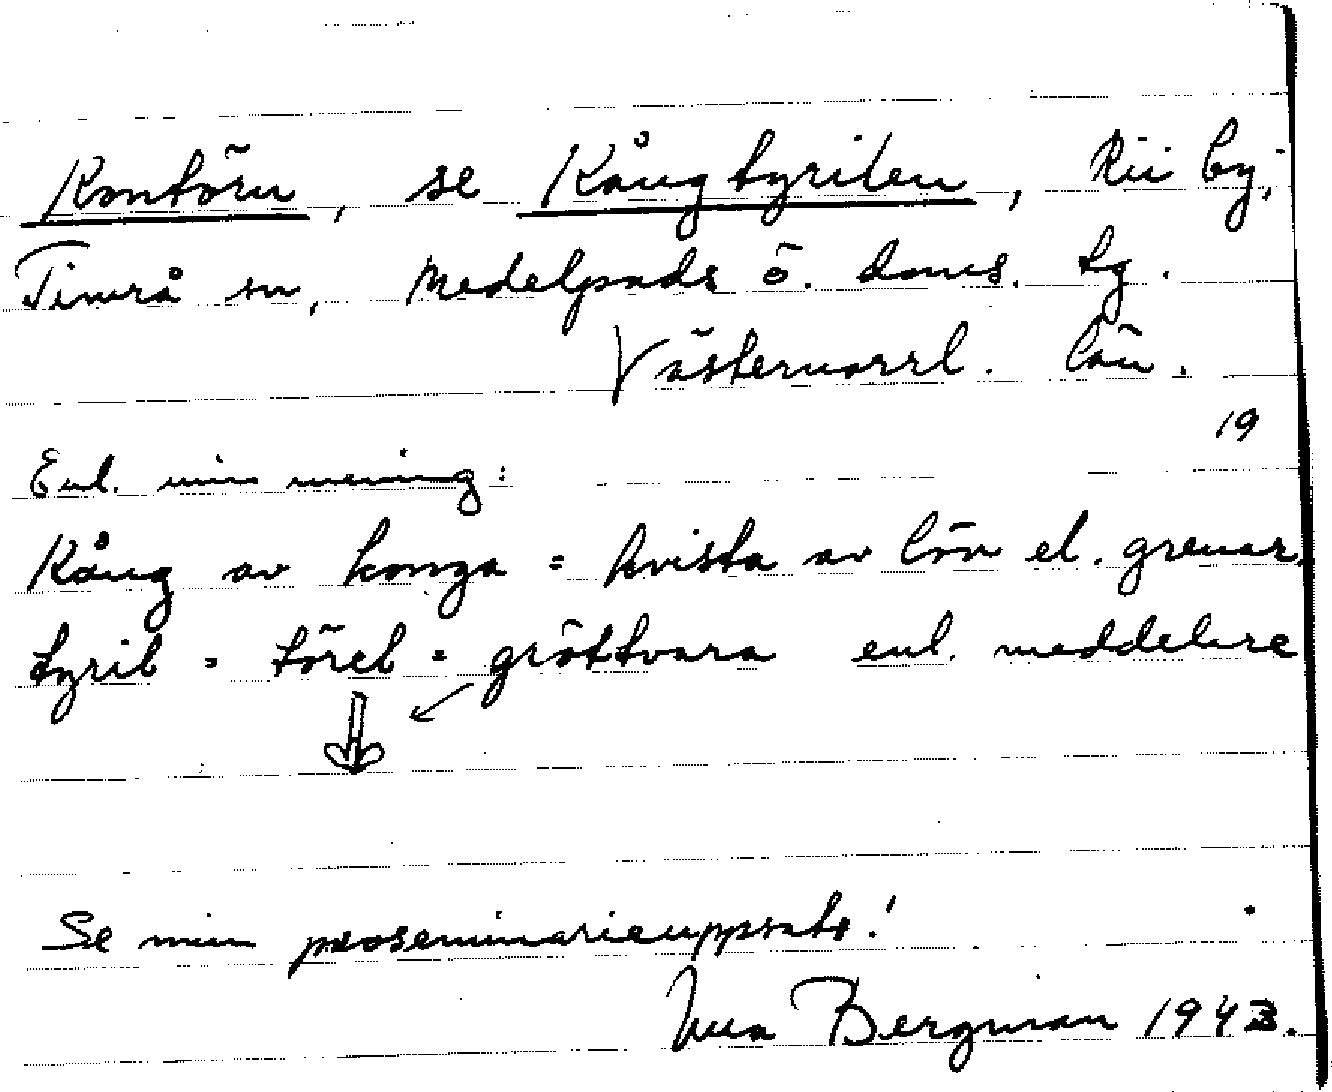 Kontörn, se Kångtyrilen, Rii by,
Timrå sn, Medelpads ö. doms. tg.
Västernorrl. län.
19
Enl. min mening:
Kång av konga = kvista av löv el. grenar.
tyril = törel = gröttvara enl. meddelare
Se min proseminarieuppsats!
Bergman 1943.